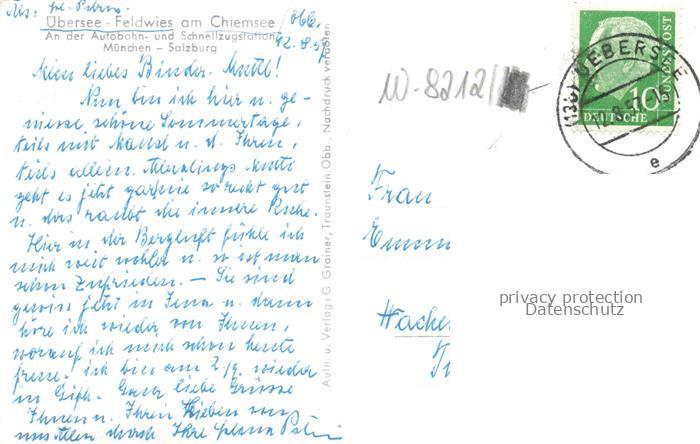 Übersee - Feldwies am Chiemsee
An der Autobahn- und Schnellzugstation
München – Salzburg
12.8.57
Mein liebes Binder-Muttl!
Nun bin ich hier u. ge-
niesse schöne Sommertage,
teils mit Mausl u. d. Ihren,
teils allein. Allerdings Mutti
geht es jetzt garnie so recht gut
u. das raubt die innere Ruhe.
Hier in der Bergluft fühle ich
mich weit wohler u. so ist man
schon zufrieden. — Sie sind
gewiss jetzt in Jena u. dann
höre ich wieder von Ihnen,
worauf ich mich schon heute
freue. ich bin am 2./9. wieder
in Ganz liebe Grüsse
Ihnen u. Ihren Lieben von
uns allen durch Ihre
Aufn. u. Verlag: G. Grainer, Traunstein Obb. Nachdruck verboten
W-8212/
UEBERSEE
(13b)
e
10
DEUTSCHE
BUNDESPOST
Frau
Hacke
privacy protection
Datenschutz